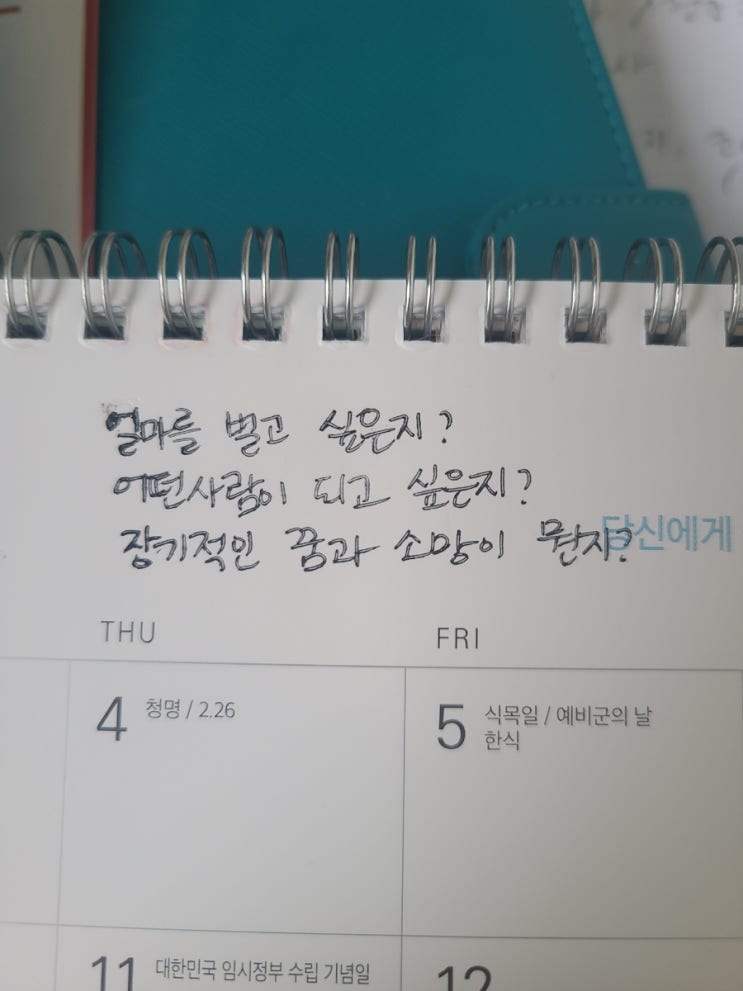 얼마를 벌고 싶은지?
어떤사람이 되고 싶은지?
장기적인 꿈과 소망이 뭔지?
당신에게
THU
FRI
4 청명 / 2.26
5 식목일 / 예비군의 날
한식
11 대한민국 임시정부 수립 기념일
12